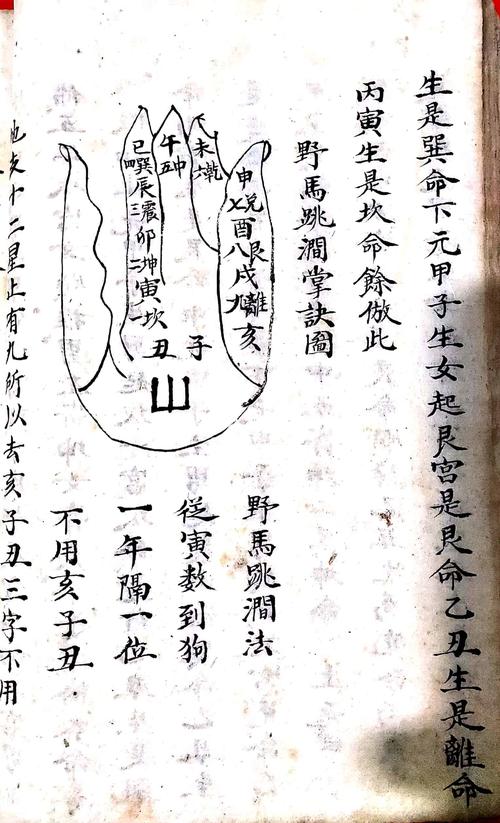 生是巽命下元甲子生女起艮宮是艮命乙丑生是離命
丙寅生是坎命餘倣此
野馬跳澗掌訣圖
申七兌
酉八艮
戌九離
亥
未六乾
午五中
巳四巽
辰三震
卯二坤
寅一坎
丑
子
山
野馬跳澗法
從寅數到狗
一年隔一位
不用亥子丑
十二星止有九所以去亥子丑三字不用